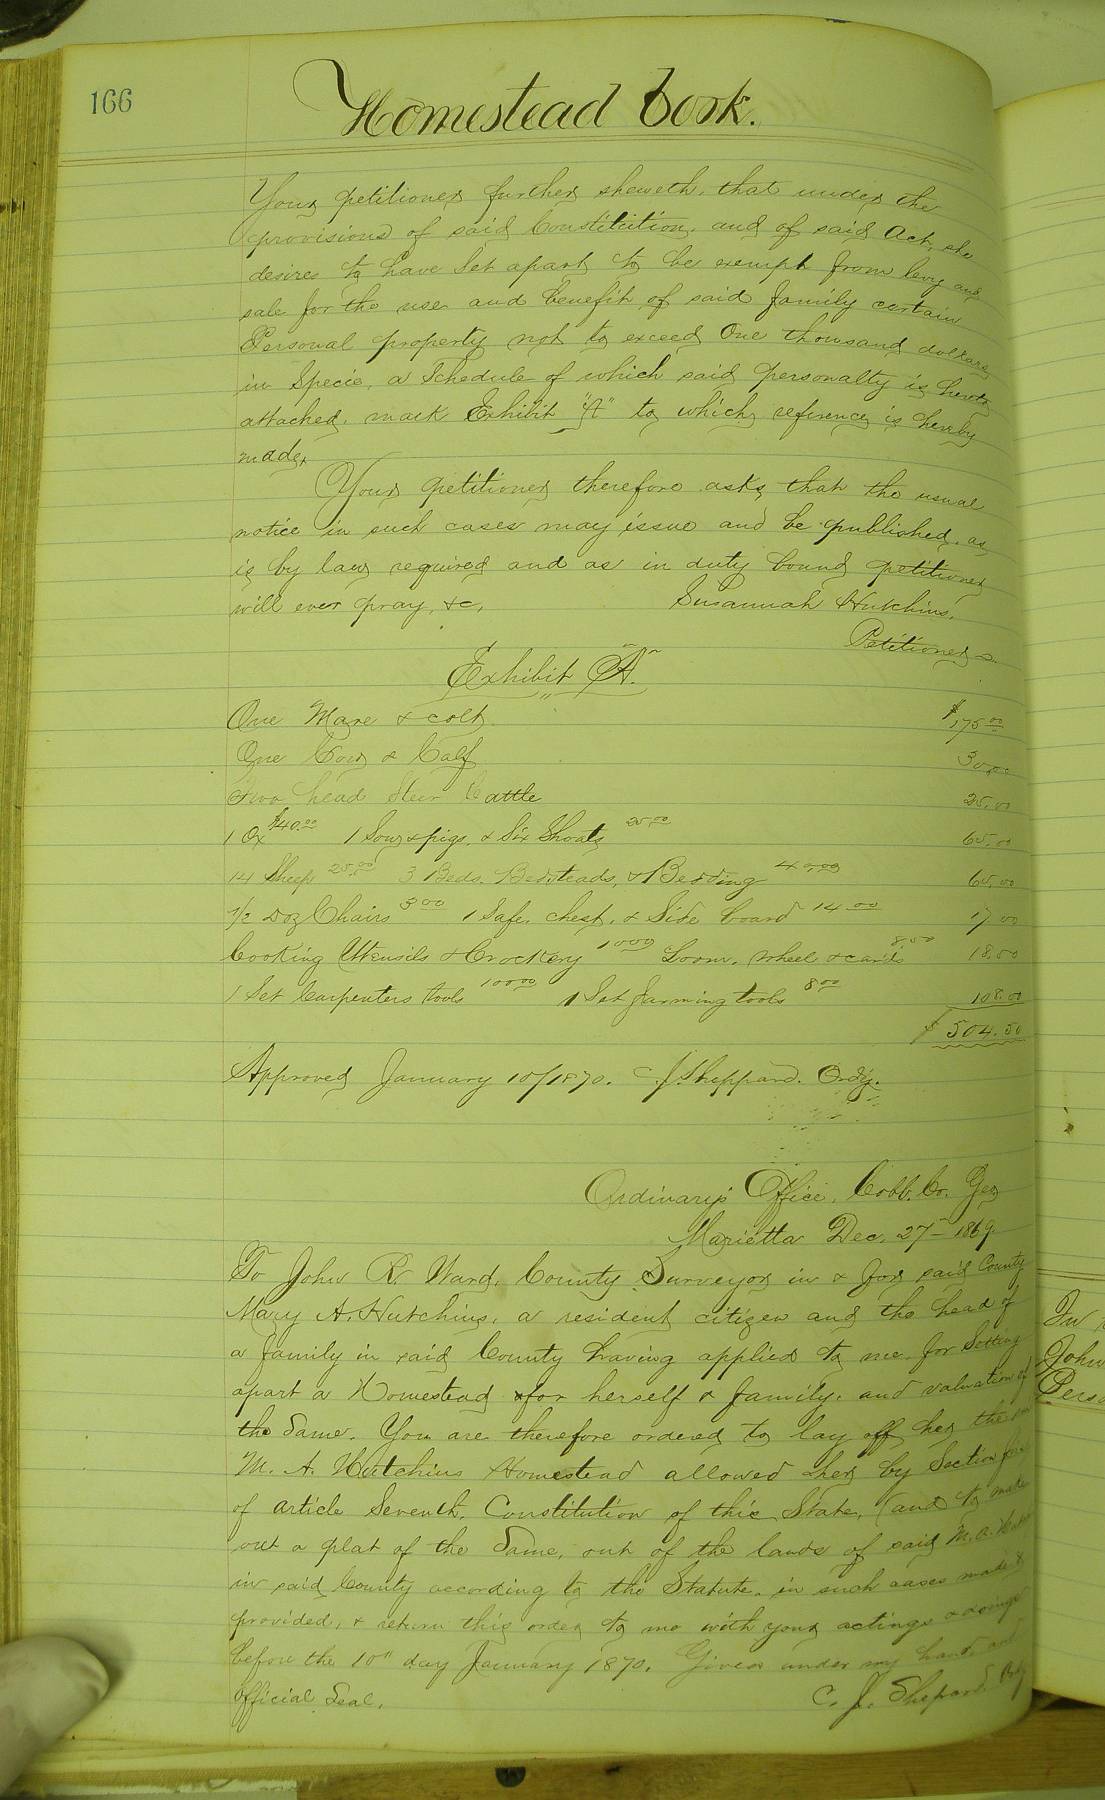 166
Homestead book.
Your petitioner further sheweth, that under the
provisions of said Constitution, and of said Act, she
desires to have Set apart to be exempt from levy and
sale for the use and benefit of said family certain
Personal property not to exceed One thousand dollars
in Specie, a Schedule of which said personalty is hereto
attached, mark Exhibit "A" to which reference is hereby
made,
Your petitioner therefore asks that the usual
notice in such cases may issue and be published, as
is by law required and as in duty bound petitioner
will ever pray, &c, Susannah Hutchins,
Petitioner
Exhibit "A"
One Mare & colt $175.00
One Cow & Calf 30.00
Two head Steer Cattle 25.00
1 Ox $40.00 1 Sow & pigs, & Six Shoats 25.00 65.00
14 Sheep 25.00 3 Beds, Bedsteads, & Bedding 40.00 65.00
1/2 Doz Chairs 3.00 1 Safe, chest, & Side board 14.00 17.00
Cooking Utensils & Crockery 10.00 Loom, wheel & cards 8.00 18.00
1 Set Carpenters tools 100.00 1 Set farming tools 8.00 108.00
$ 504.50
Approved January 10/1870. C. J. Sheppard. Ordy.
Ordinary's Office, Cobb. Co. Geo
Marietta Dec, 27 - 1869
To John R. Ward, County Surveyor in & for said County
Mary A. Hutchins, a resident citizen and the head of
a family in said County having applied to me for Setting
apart a Homestead for herself & family, and valuation of
the Same. You are therefore ordered to lay off her the
M. A. Hutchins Homestead allowed her by Section first
of article Seventh, Constitution of this State, (and to make
out a plat of the Same, out of the lands of said M. A.
in said County according to the Statute, in such cases made &
provided, & return this order to me with your actings & doings
before the 10" day January 1870. Given under my hand and
official Seal. C. J. Shepard Ordy
In
John